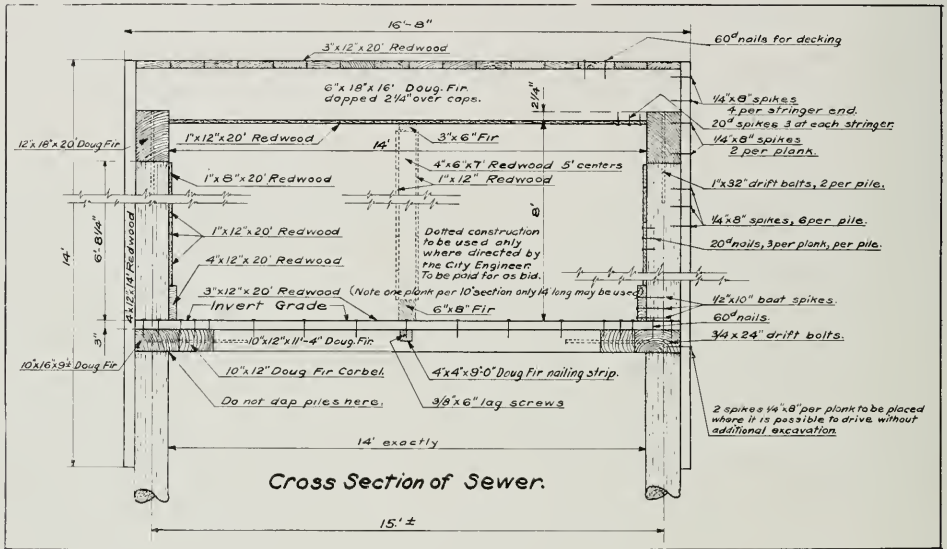 16'-8"
3"x12"x20' Redwood
60d nails for decking
6"x 18"x 16' Doug. Fir
dapped 2 1/4" over caps.
12 1/4"
1/4"x8" spikes
4 per stringer end.
20d spikes 3 at each stringer.
1/4"x8" spikes
2 per plank.
12"x18"x20' Doug Fir
1"x12"x20' Redwood
3"x6" Fir
14'
1"x8"x20' Redwood
4"x6"x7' Redwood 5' centers
1"x12" Redwood
1"x32" drift bolts, 2 per pile.
8'
1/4"x8" spikes, 6 per pile.
14'
6'-8 1/4"
4x12"x14' Redwood
1"x12"x20' Redwood
Dotted construction
to be used only
where directed by
the City Engineer.
To be paid for as bid.
20d nails, 3 per plank, per pile.
4"x12"x20' Redwood
3"x12"x20' Redwood (Note one plank per 10' section only 14' long may be used)
1/2"x10" boat spikes.
Invert Grade
6"x8" Fir
60d nails.
3"
3/4 x 24" drift bolts.
10"x12"x11'-4" Doug. Fir.
10"x16"x9'± Doug Fir
10"x12" Doug Fir Corbel.
4"x4"x9'-0" Doug Fir nailing strip.
Do not dap piles here.
3/8"x6" lag screws
2 spikes 1/4"x8" per plank to be placed
where it is possible to drive without
additional excavation.
14' exactly
Cross Section of Sewer.
15.' ±